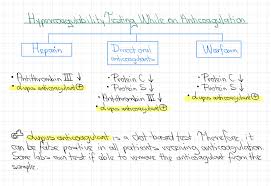 Hypercoagulability Testing While on Anticoagulation
Heparin
Directional anticoagulants
Warfarin
• Antithrombin III ↓
• lupus anticoagulant ⊕
• Protein C ↓
• Protein S ↓
• Antithrombin III ↓
• lupus anticoagulant ⊕
• Protein C ↓
• Protein S ↓
• lupus anticoagulant ⊕
lupus anticoagulant is a clot-based test. Therefore, it
can be false positive in all patients receiving anticoagulation.
Some labs run test if able to remove the anticoagulant from the
sample.